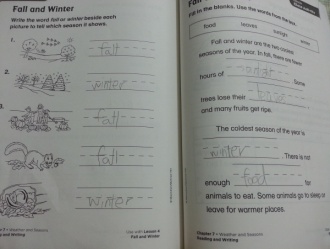 Fall and Winter
Write the word fall or winter beside each
picture to tell which season it shows.
1.
fall
2.
winter
3.
fall
fall
winter
Use with Lesson 4
Fall and Winter
Weather and Seasons
Fill in the blanks. Use the words from the box.
food leaves
sunlight winter
Fall and winter are the two coldest
seasons of the year. In fall, there are fewer
hours of
. Some
trees lose their
and many fruits get ripe.
The coldest season of the year is
winter. There is not
enough food for
animals to eat. Some animals go to sleep or
leave for warmer places.
Chapter 7 • Weather and Seasons
Reading and Writing